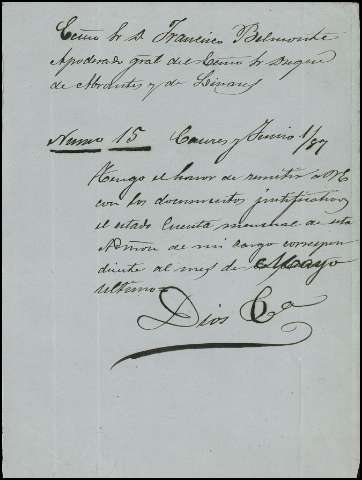 Exmo Sr D. Francisco Belmonte
Apoderado gral del Exmo Sr Duque
de Abrantes y de Linares
Numo 15 Caceres y Junio 1/87
Tengo el honor de remitir a VE
con los documentos justificativos
el estado Cuenta mensual de esta
Admon de mi cargo correspon
diente al mes de Mayo
ultimo=
Dios Ca